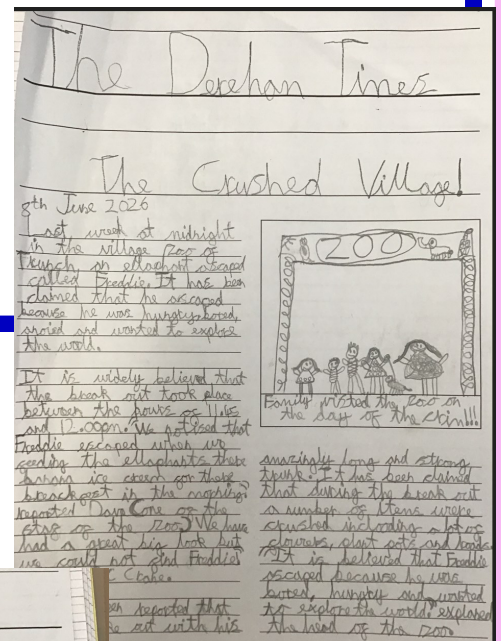 The Derehan Times
The Crushed Village!
8th June 2026
Last week at midnight
in the village zoo of
Trunch an ellaphant escaped
called Freddie. It has been
claimed that he escaped
because he was hungry, bored,
and wanted to explore
the world.
It is widely believed that
the break out took place
between the hours of 11.45
and 12.00pm. "We notised that
Freddie escaped when we
feeding the ellaphants there
banana ice cream for there
breackfest in the morning"
reported Dave (one of the
of the zoo) "We have
had a great big look but
we could not find Freddie"
reported that
out with his
ZOO
Family visited the zoo on
the day of the
amazingly long and strong
trunk. It has been claimed
that during the break out
a number of items were
crushed inclooding a lot of
flowers, plant pots and
"It is believed that Freddie
escaped because he was
bored, hungry and wanted
to explore the world" explaned
the head of the zoo